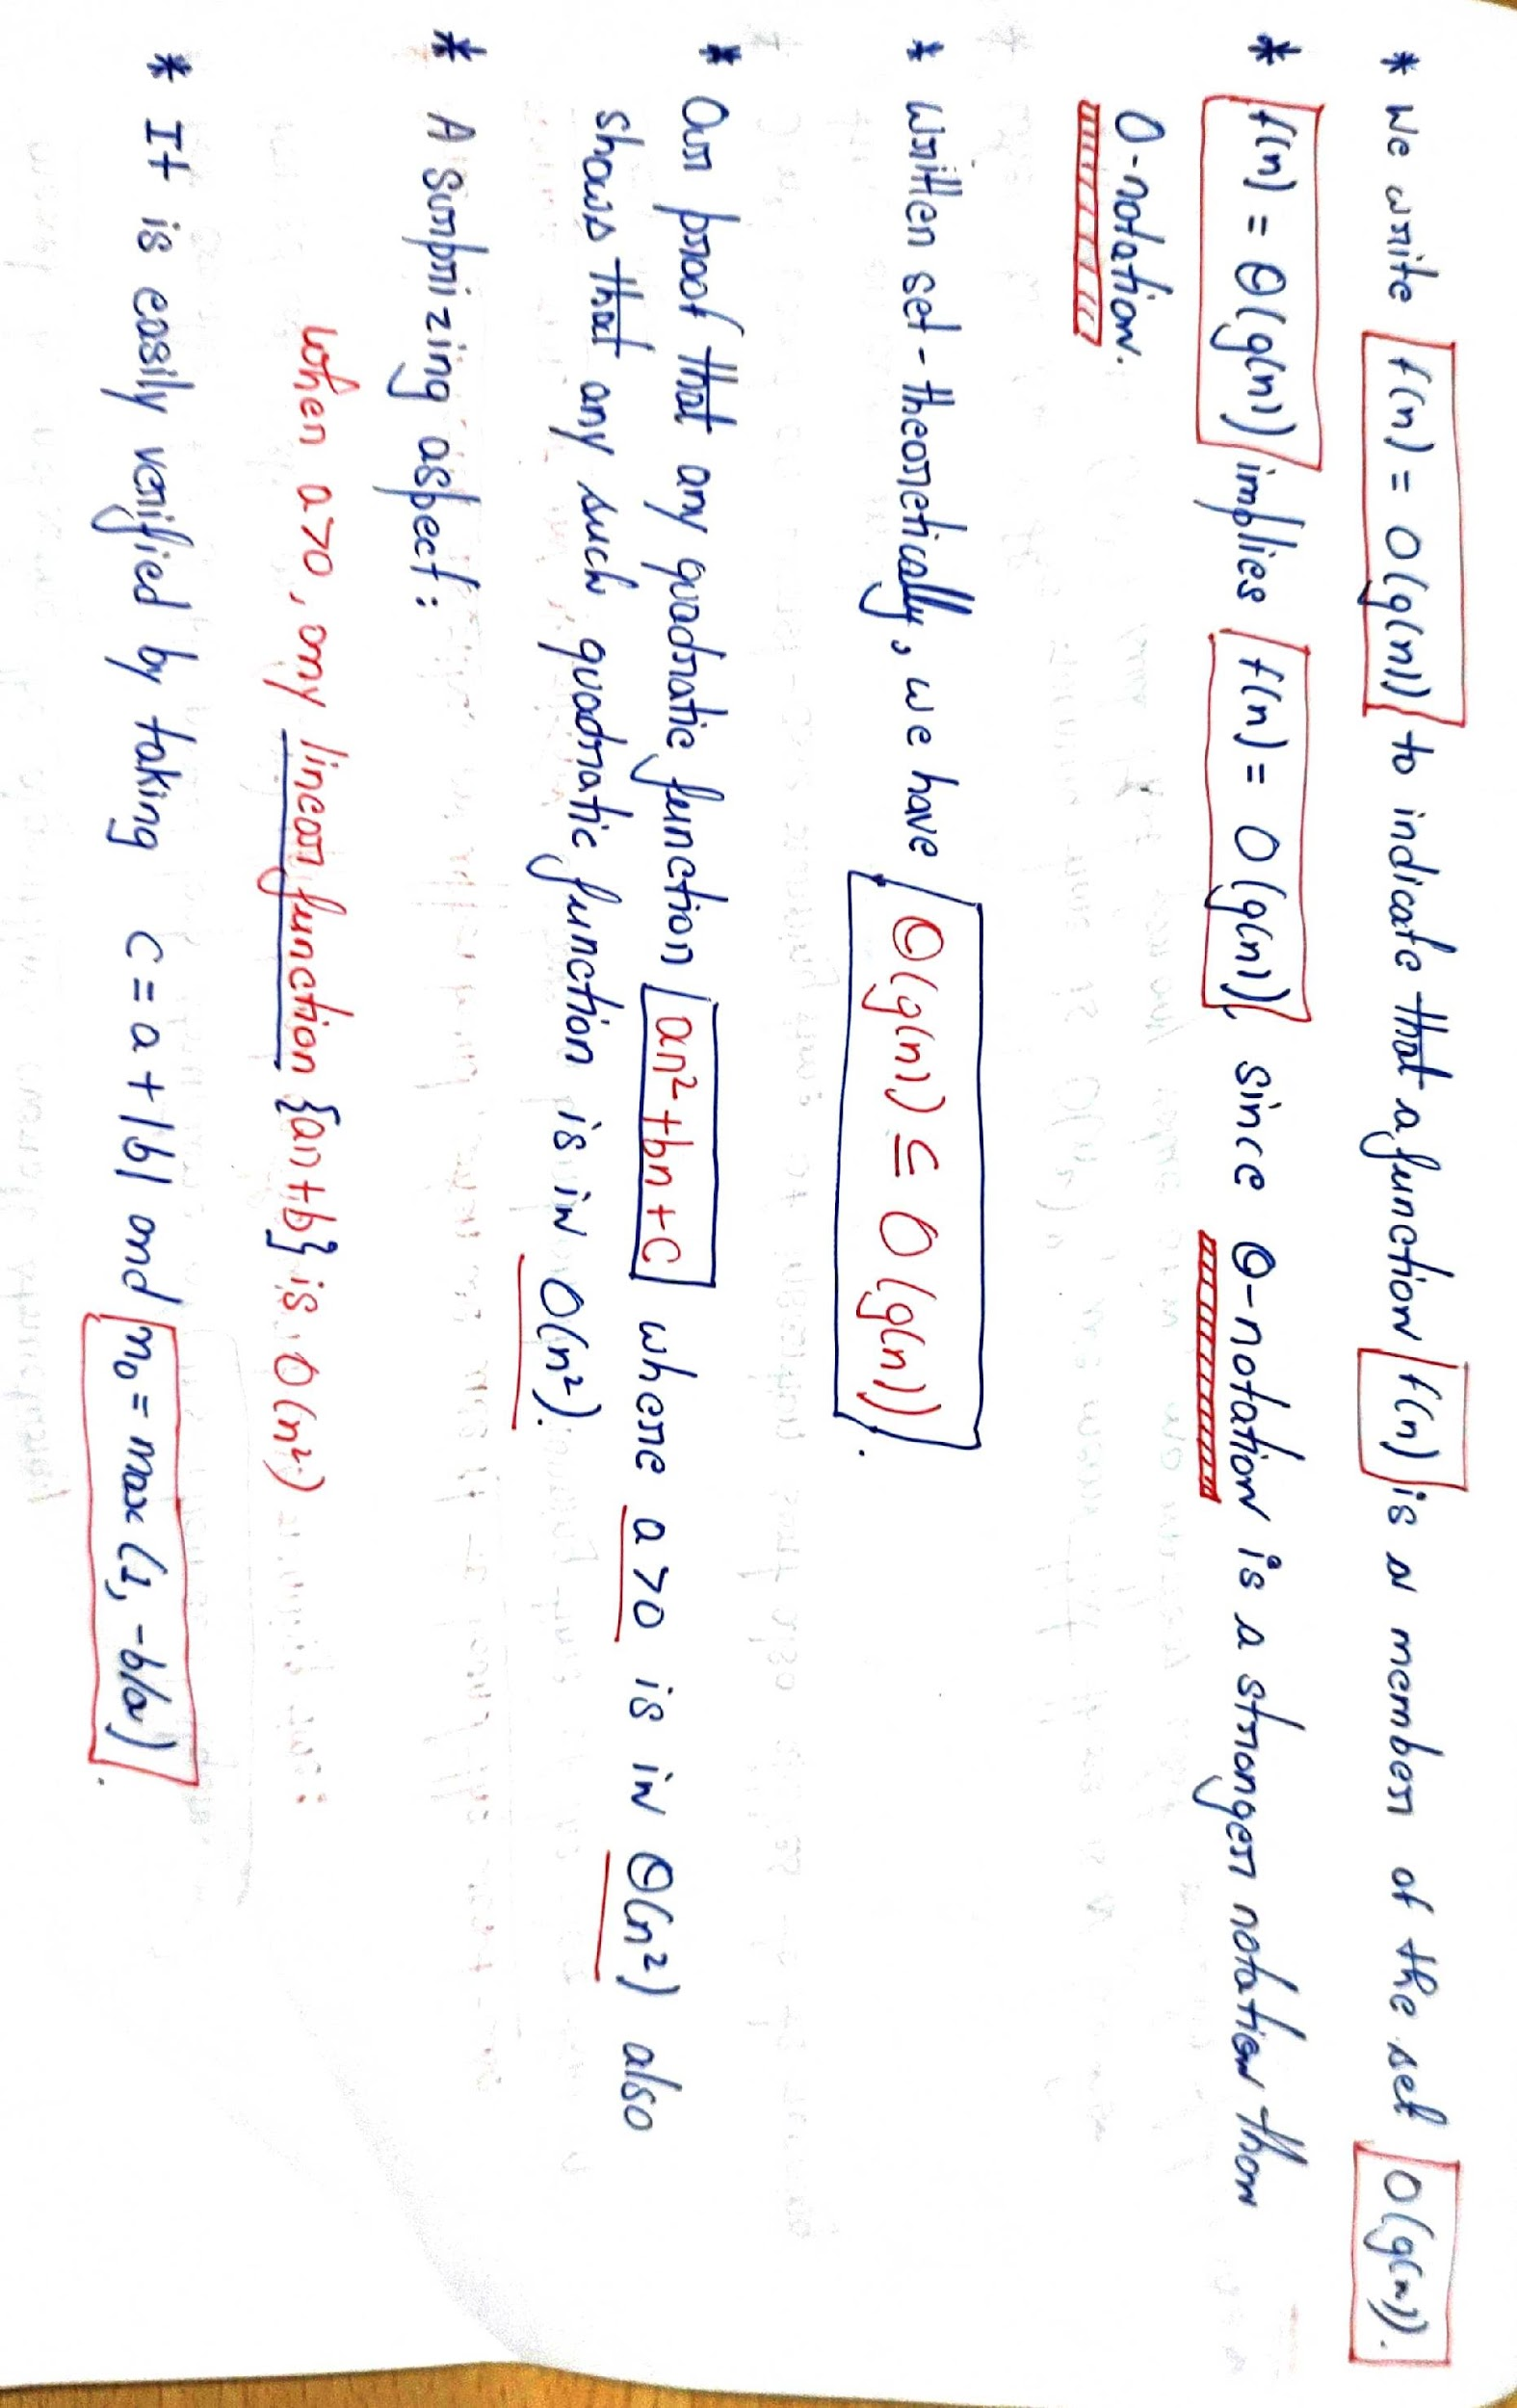 * We write f(n) = O(g(n)) to indicate that a function f(n) is a member of the set O(g(n)).
* f(n) = Θ(g(n)) implies f(n) = O(g(n)), since Θ-notation is a stronger notation than
O-notation.
* Written set-theoretically, we have Θ(g(n)) ⊆ O(g(n)).
* Our proof that any quadratic function an²+bn+c where a>0 is in Θ(n²) also
shows that any such quadratic function is in O(n²).
* A surprizing aspect:
when a>0, any linear function {an+b} is O(n²)
* It is easily verified by taking c = a + |b| and n₀ = max(1, -b/a).